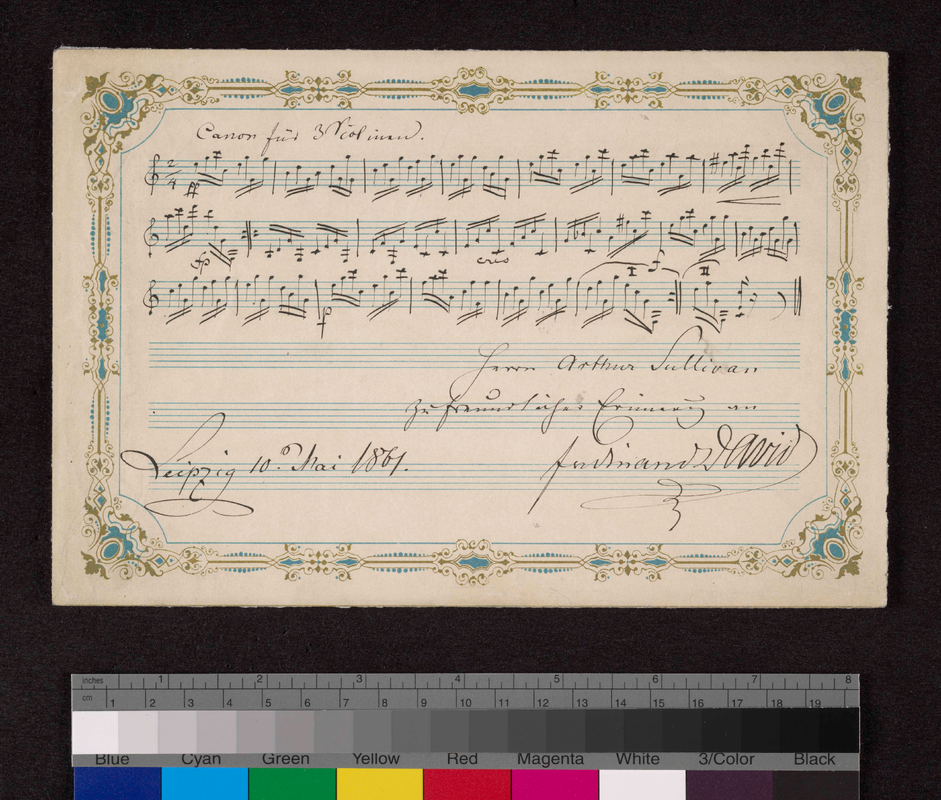 Canon für 3 Violinen.
2/4
ff
fp
cres
I f II
p
Herrn Arthur Sullivan
zu freundlicher Erinnerung an
Leipzig 10. Mai 1861.
Ferdinand David
inches 1 2 3 4 5 6 7 8
cm 1 2 3 4 5 6 7 8 9 10 11 12 13 14 15 16 17 18 19
Blue Cyan Green Yellow Red Magenta White 3/Color Black